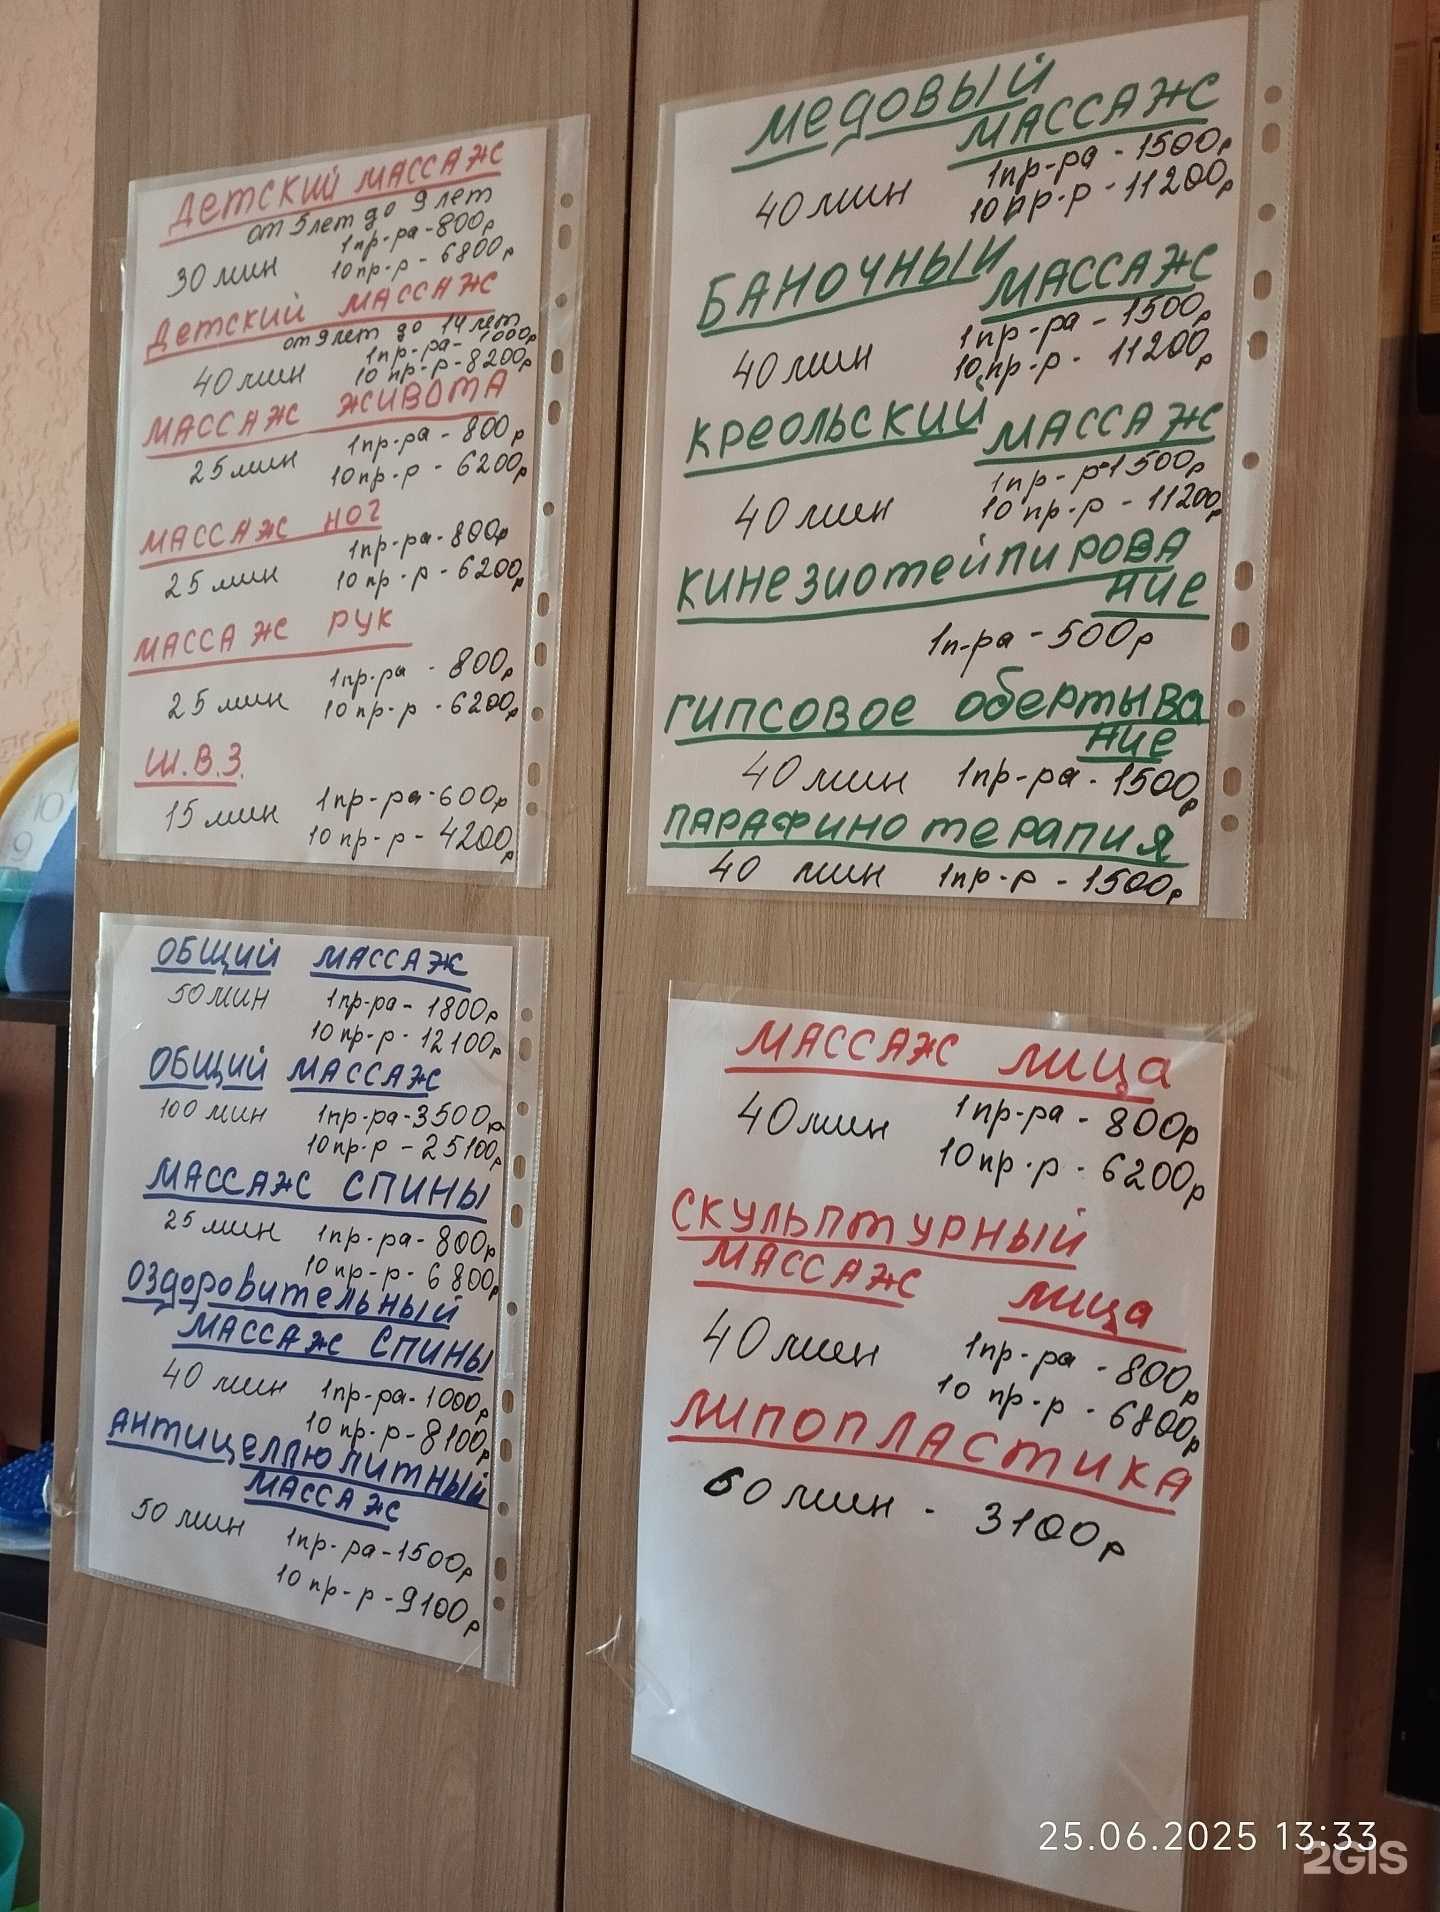 Детский массаж
от 5 лет до 9 лет
1пр-ра - 800р
30 мин 10 пр-р - 6800р
Детский массаж
от 9 лет до 14 лет
1пр-ра - 1000р
40 мин 10 пр-р - 8200р
массаж живота
1пр-ра - 800р
25 мин 10 пр-р - 6200р
массаж ног
1пр-ра - 800р
25 мин 10 пр-р - 6200р
массаж рук
1пр-ра - 800р
25 мин 10 пр-р - 6200р
Ш.В.З.
15 мин 1пр-ра - 600р
10 пр-р - 4200р
общий массаж
50 мин 1пр-ра - 1800р
10 пр-р - 12100р
общий массаж
100 мин 1пр-ра - 3500р
10 пр-р - 25100р
массаж спины
25 мин 1пр-ра - 800р
10 пр-р - 6800р
оздоровительный
массаж спины
40 мин 1пр-ра - 1000р
10 пр-р - 8100р
антицеллюлитный
массаж
50 мин 1пр-ра - 1500р
10 пр-р - 9100р
медовый
массаж
1пр-ра - 1500р
40 мин 10 пр-р - 11200р
Баночный
массаж
1пр-ра - 1500р
40 мин 10 пр-р - 11200р
креольский
массаж
1пр-р - 1500р
40 мин 10 пр-р - 11200р
кинезиотейпирова
ние
1п-ра - 500р
гипсовое обертыва
ние
40 мин 1пр-ра - 1500р
парафинотерапия
40 мин 1пр-р - 1500р
массаж лица
40 мин 1пр-ра - 800р
10 пр-р - 6200р
скульптурный
массаж лица
40 мин 1пр-ра - 800р
10 пр-р - 6800р
липопластика
60 мин - 3100р
25.06.2025 13:33
2GIS